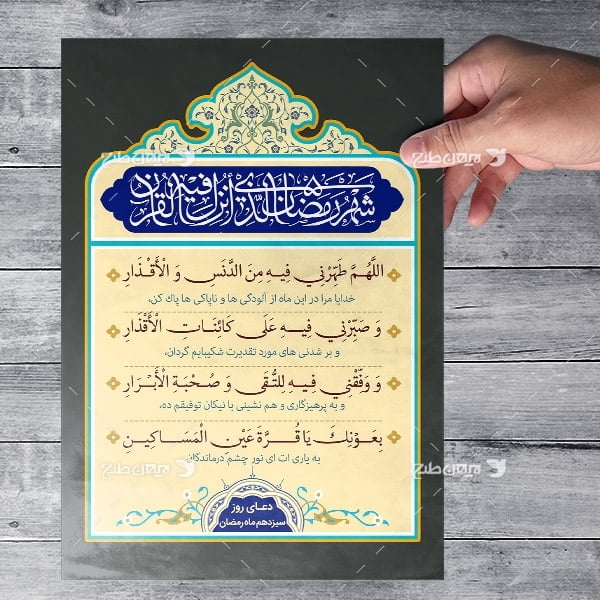 شَهْرُ رَمَضَانَ الَّذِي أُنزِلَ فِيهِ الْقُرْآنُ
اللَّهُمَّ طَهِّرْنِي فِيهِ مِنَ الدَّنَسِ وَ الْأَقْذَارِ
خدایا مرا در این ماه از آلودگی ها و ناپاکی ها پاک کن،
وَ صَبِّرْنِي فِيهِ عَلَى كَائِنَاتِ الْأَقْدَارِ
و بر شدنی های مورد تقدیرت شکیبایم گردان،
وَ وَفِّقْنِي فِيهِ لِلتُّقَى وَ صُحْبَةِ الْأَبْرَارِ
و به پرهیزگاری و هم نشینی با نیکان توفیقم ده،
بِعَوْنِكَ يَا قُرَّةَ عَيْنِ الْمَسَاكِينِ
به یاری ات ای نور چشم درماندگان
دعای روز
سیزدهم ماه رمضان
میهن طرح